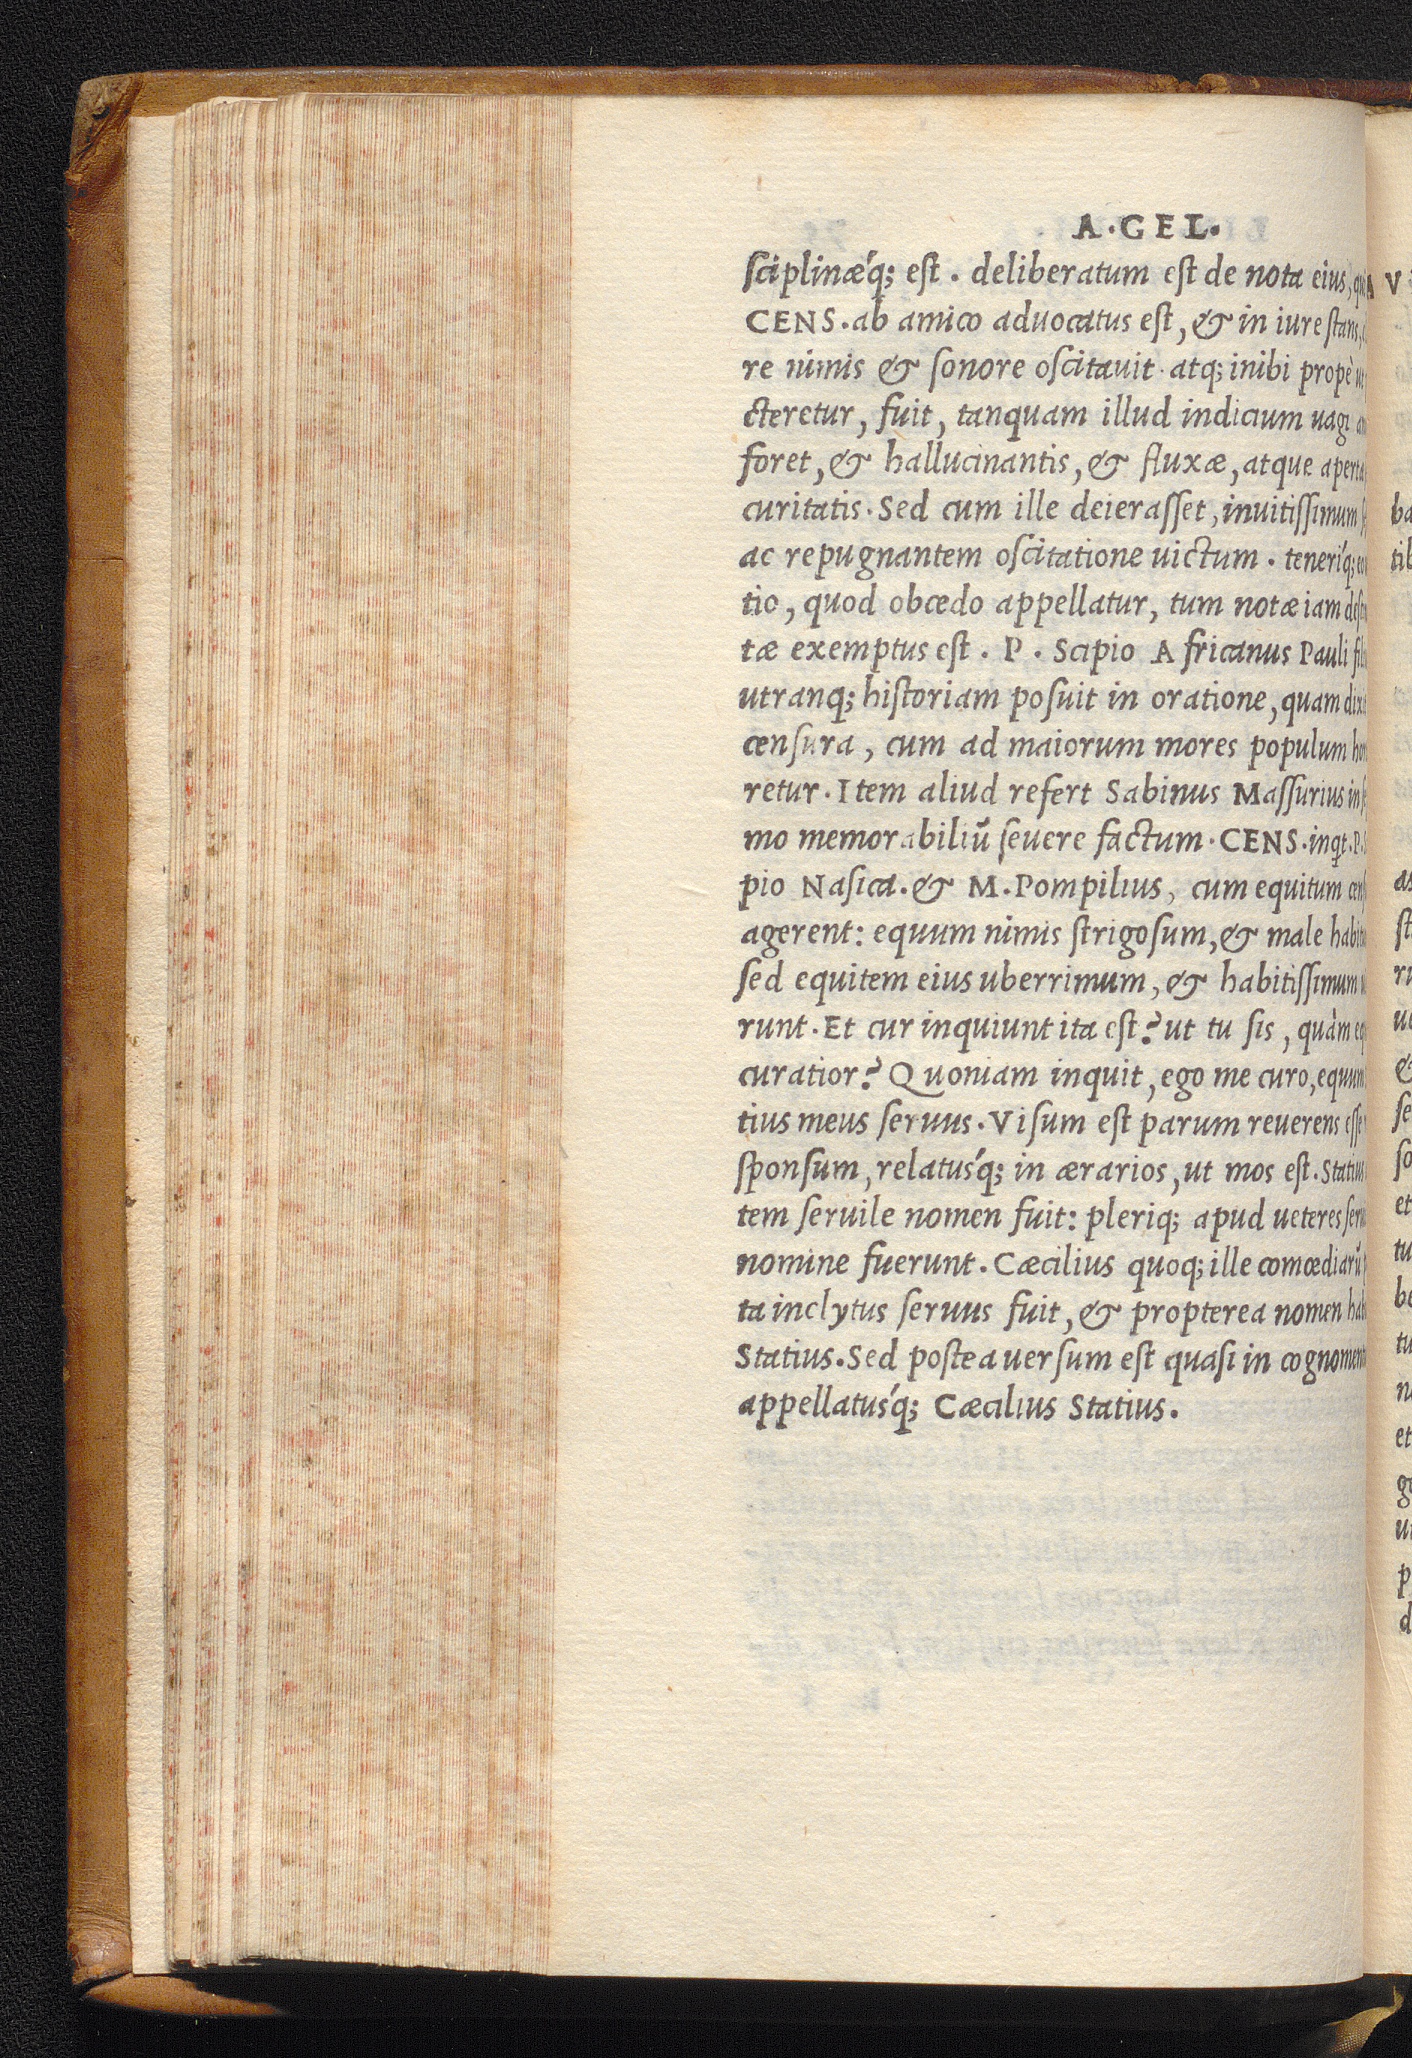 A·GEL.
sciplinǽq; est . deliberatum est de nota eius,
CENS.ab amico aduocatus est, & in iure stans,
re nimis & sonore oscitauit· atq; inibi propè
cteretur, fuit, tanquam illud indicium uagi
foret, & hallucinantis, & fluxæ, atque
curitatis· Sed cum ille deierasset, inuitissimum
ac repugnantem oscitatione uictum . teneríq;
tio, quod obœdo appellatur, tum notæ iam
tæ exemptus est . P . Scipio Africanus Pauli
utranq; historiam posuit in oratione, quam
censura, cum ad maiorum mores populum
retur· Item aliud refert Sabinus Massurius in
mo memorabiliū seuere factum· CENS·inqt. P.
pio Nasica. & M.Pompilius, cum equitum
agerent: equum nimis strigosum, & male
sed equitem eius uberrimum, & habitissimum
runt· Et cur inquiunt ita est? ut tu sis, quàm
curatior? Quoniam inquit, ego me curo, equum
tius meus seruus· Visum est parum reuerens esse
sponsum, relatuśq; in ærarios, ut mos est. Statius
tem seruile nomen fuit: pleriq; apud ueteres
nomine fuerunt. Cæcilius quoq; ille comœdiarū
ta inclytus seruus fuit, & propterea nomen
Statius. Sed postea uersum est quasi in
appellatuśq; Cæcilius Statius.